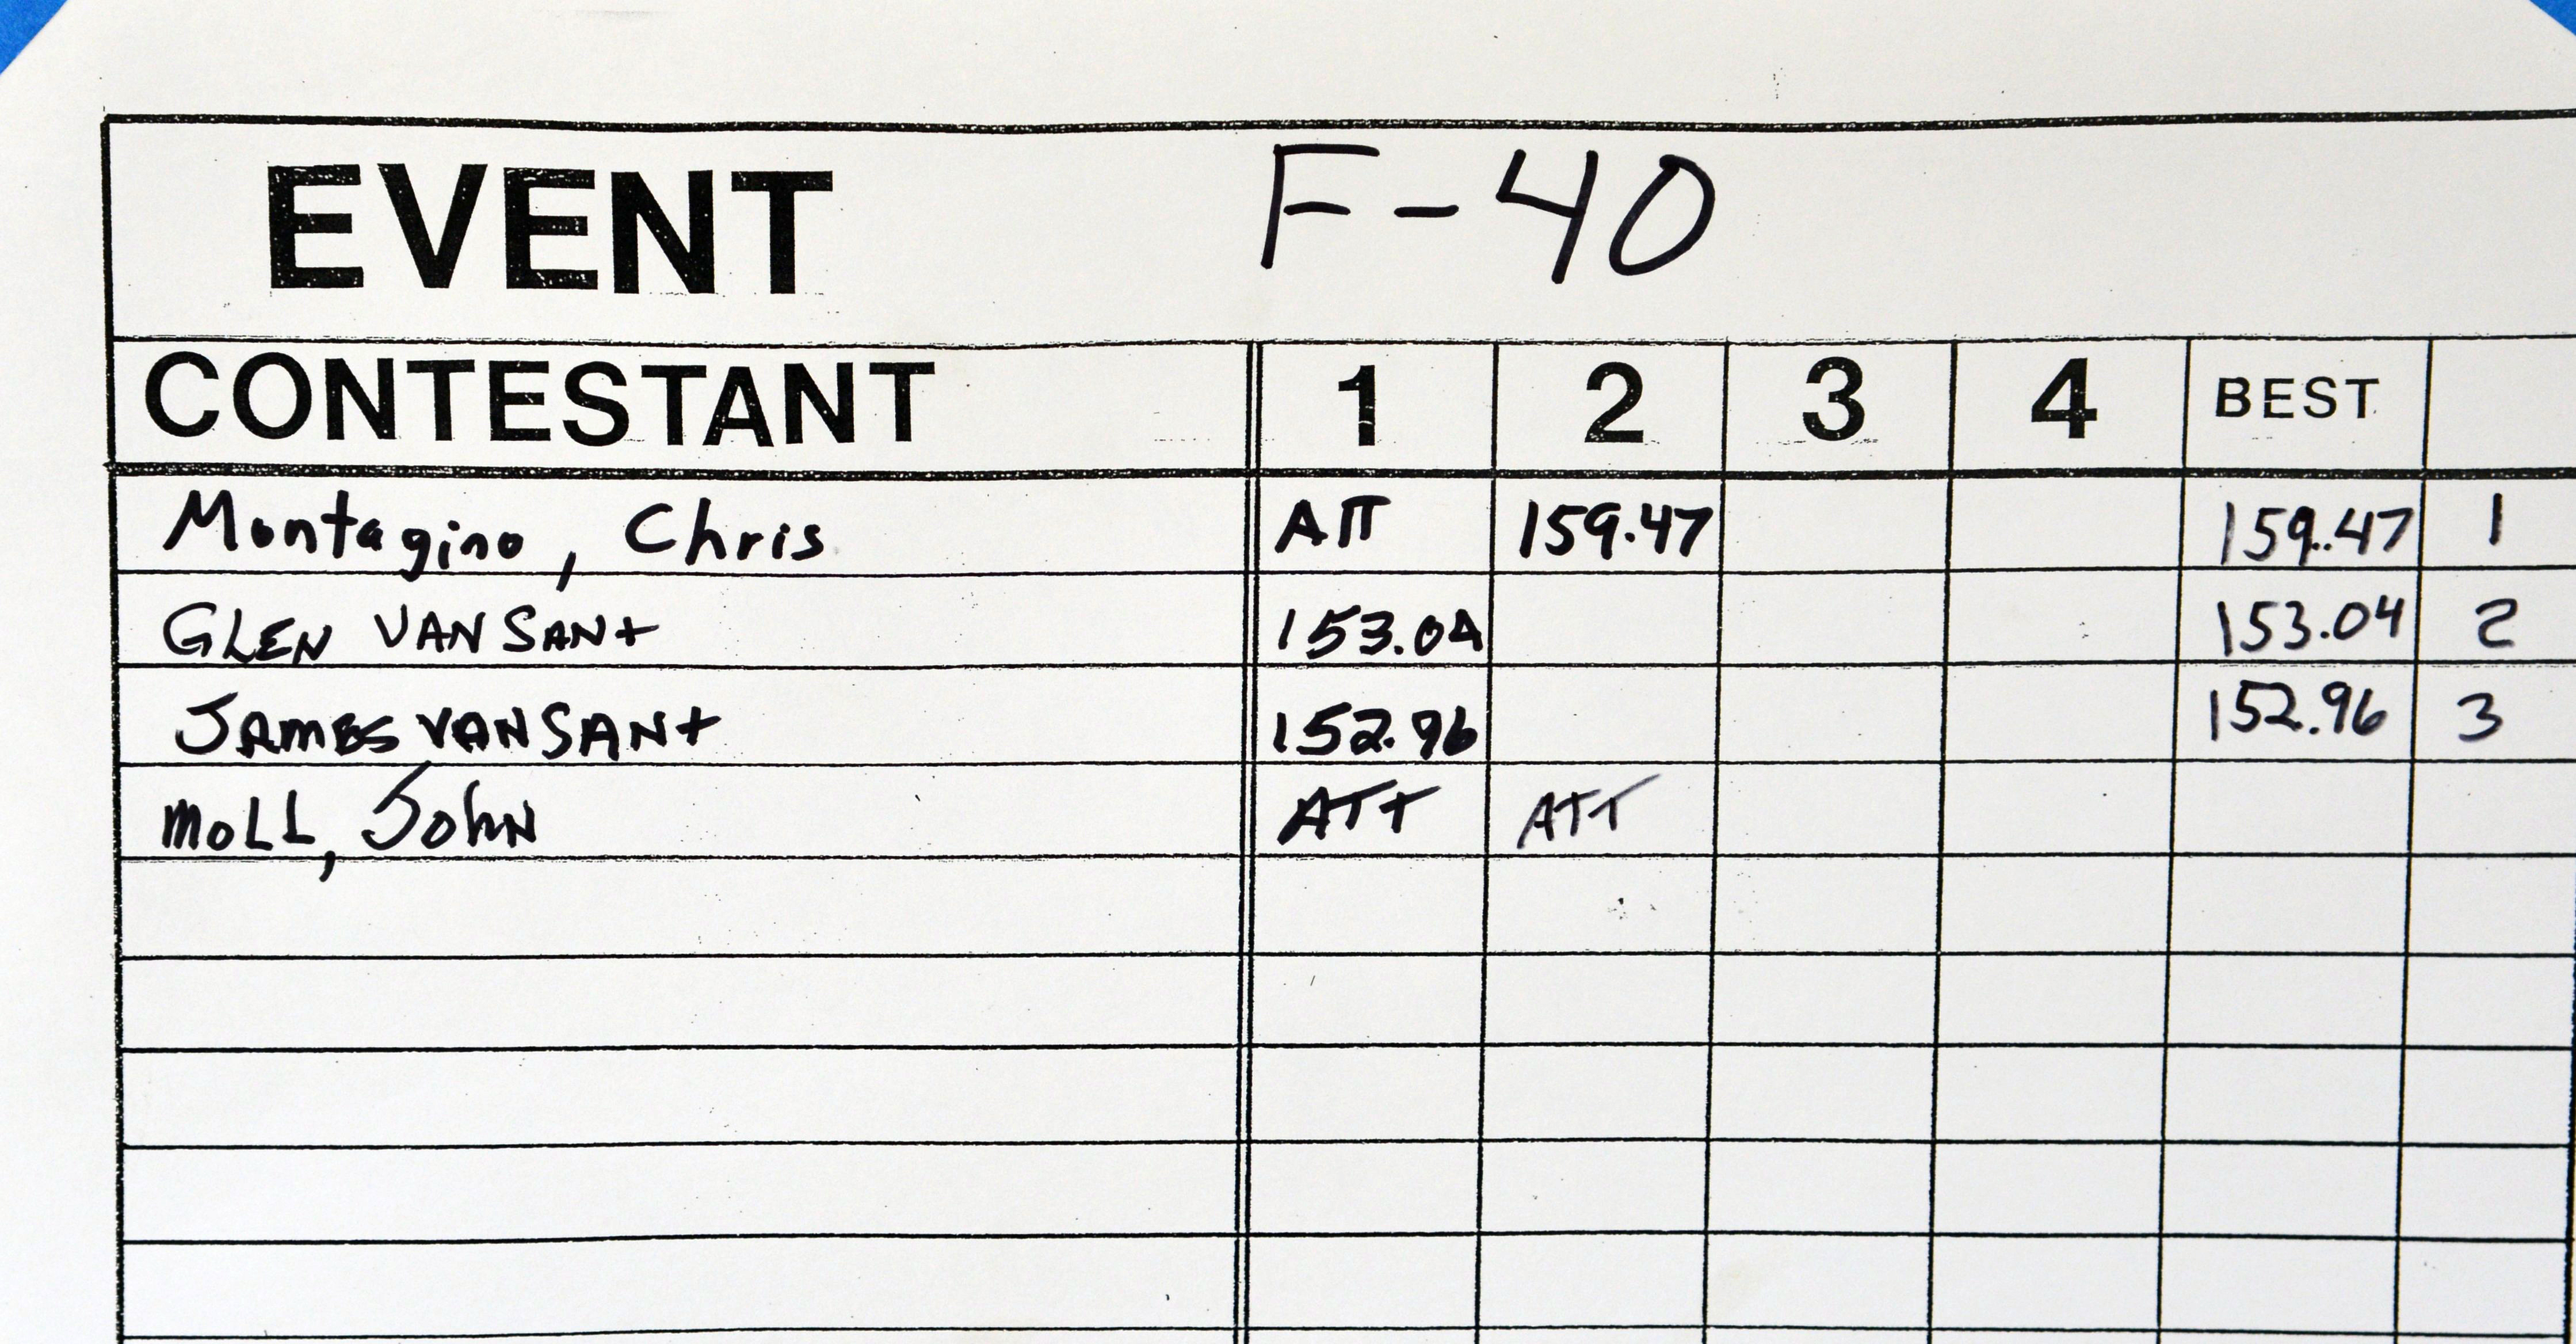 EVENT F-40
CONTESTANT 1 2 3 4 BEST
Montagino, Chris ATT 159.47 159.47 1
GLEN VAN SANt 153.04 153.04 2
JAMES VAN SANt 152.96 152.96 3
MOLL, JohN ATT ATT